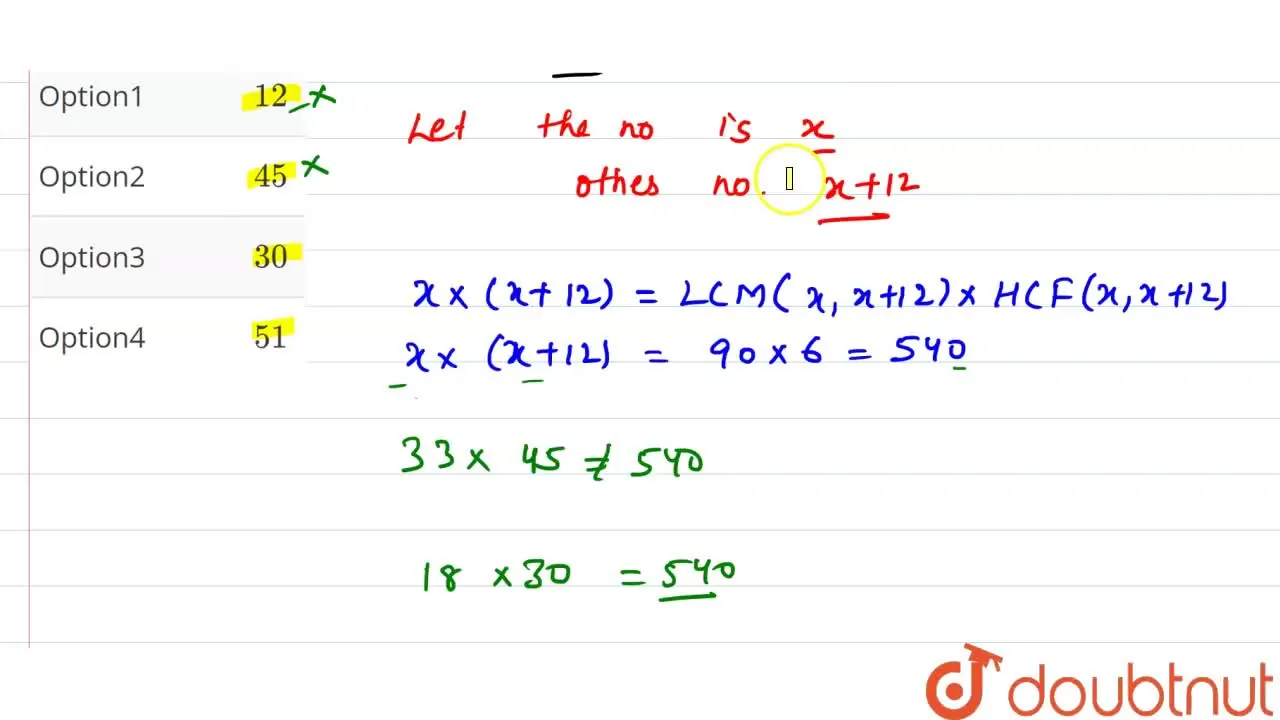 Option1 12 x
Option2 45 x
Option3 30
Option4 51
Let the no is x
othes no. x+12
x × (x+12) = LCM( x, x+12) × HCF(x, x+12)
x × (x+12) = 90 × 6 = 540
33 × 45 ≠ 540
18 × 30 = 540
doubtnut